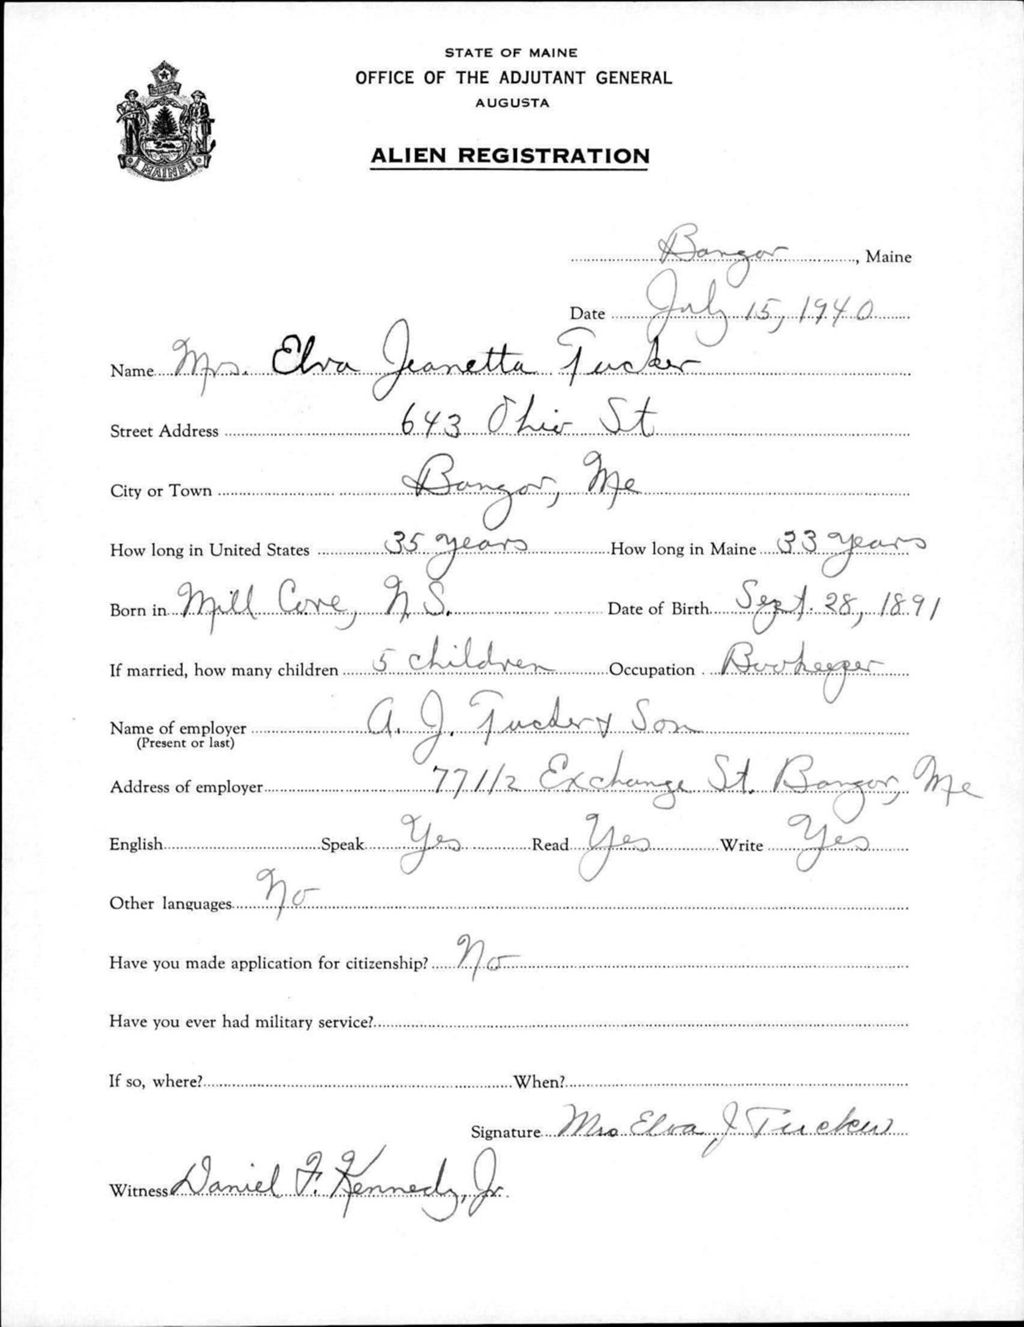 STATE OF MAINE
OFFICE OF THE ADJUTANT GENERAL
AUGUSTA
ALIEN REGISTRATION
MAINE
Bangor, Maine
Date July 15, 1940
Name Mrs. Elva Jeanetta Tucker
Street Address 643 Ohio St
City or Town Bangor, Me
How long in United States 35 years How long in Maine 33 years
Born in Mill Cove, N.S. Date of Birth Sept. 28, 1891
If married, how many children 5 children Occupation Bookeeper
Name of employer A. J. Tucker & Son
(Present or last)
Address of employer 77 1/2 Exchange St. Bangor, Me
English Speak Yes Read Yes Write Yes
Other languages No
Have you made application for citizenship? No
Have you ever had military service?
If so, where? When?
Signature Mrs Elva J Tucker
Witness Daniel F. Kennedy, Jr.